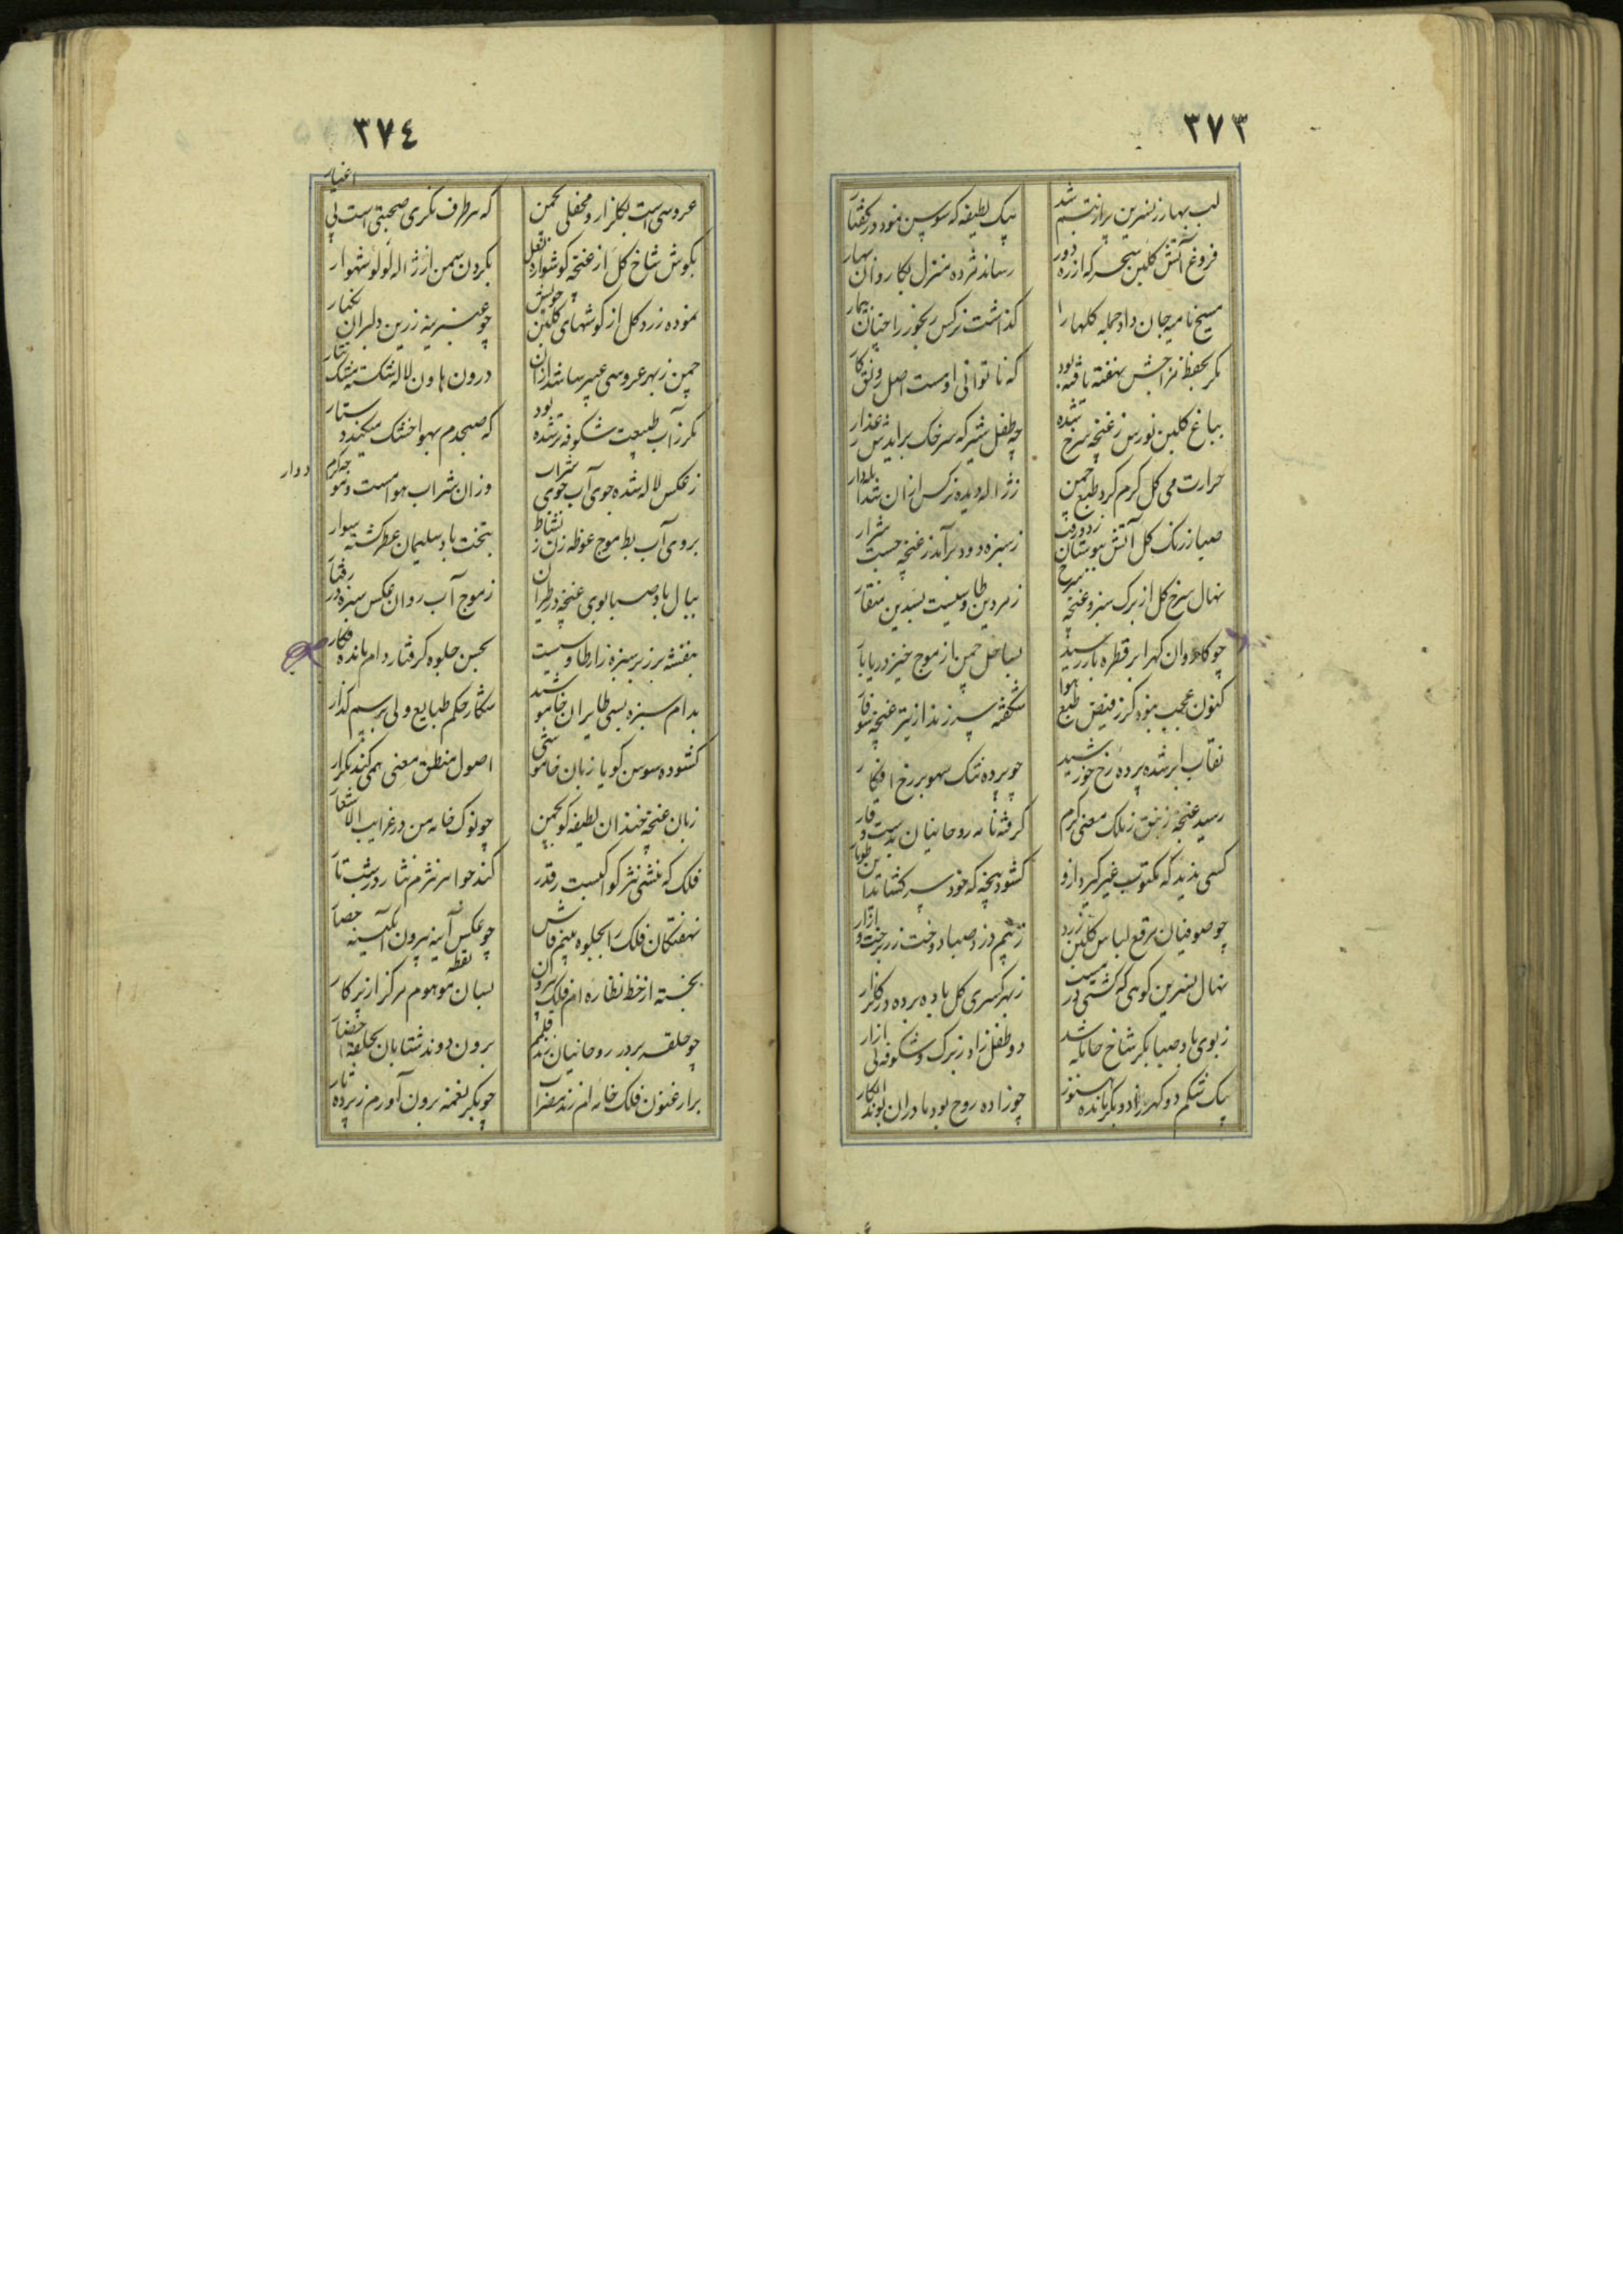 ٣٧٣
لب بهار ز نسرین پر از تبسم شد
بیک لطیفه که سوسن نمود در گفتار
فروغ آتش گلبن سحر که از ره دور
رساند مژده منزل بکاروان بهار
مسیح نامیه جان داد جمله گلها را
گذاشت نرگس رنجور را چنان بیمار
مگر بحفظ مزاجش بنفشه یافته بود
که ناتوانی او هست اصل رونق کار
بباغ گلبن نورس ز غنچه سرخ شده
چه طفل شیر که سرخک برایدش ز عذار
حرارت می گل گرم کرد طبع چمن
ز ژاله دیده نرگس ازان شد
صبا ز رنگ گل آتش ببوستان زد و رفت
ز سبزه دود برآمد ز غنچه جست شرار
نهال سرخ گل از برگ سبز و غنچه سرخ
زمردین طاوسیست بسدین منقار
چو کاروان گهر ابر قطره بار رسید
بساحل چمن از موج خیز دریا بار
کنون عجب نبود کز فیض طبع هوا
شگفته سر زند از تیر غنچه سوفار
نقاب ابر شده پرده رخ خورشید
چو پرده تنک سهو بر رخ افکار
رسید غنچه زنبق ز ملک معنی گرم
گرفته نامه روحانیان بدست وقار
کسی ندید که مکتوب غیر گیرد ازو
گشود پنجه که خود سر گشاید این طومار
چو صوفیان مرقع لباس گلبن زرد
ز بیم دزد صبا دوخت زر برخت و ازار
نهال نسرین گویی که مست
ز بهر کسری گل باده برده در گلزار
ز بوی باد صبا بکر شاخ حامله شد
دو طفل زاد ز برگ و شکوفه بی ازار
بیک شکم دو گهر زاد و بکر مانده هنوز
چو زاده روح بود مادران بوند ابکار
٣٧٤
عروسی است بگلزار و محفلی بچمن
که هر طرف نگری صحبتی است بی اغیار
بگوش شاخ گل از غنچه گوشواره لعل
بگردن سمن از ژاله لولو شهوار
نموده زرد گل از گوشهای گلبن خویش
چو عنبرینه زرین دلبران بکنار
چمن ز بهر عروسی عبیر سا شد ازان
درون هاون لاله شکسته مشک تتار
مگر ز آب طبیعت شکوفه تر شده بود
که صبحدم بهوا خشک میکند دستار
ز عکس لاله شده جوی آب جوی شراب
وزان شراب هوا مست و
دوار
بروی آب بط موج غوطه زن ز نشاط
بتخت باد سلیمان عطر گشته سوار
ببال باد صبا بوی غنچه در طیران
ز موج آب روان عکس سبزه در رفتار
بنفشه بر زبر سبزه زار طاوسیست
بحسن جلوه گرفتار دام مانده فکار
بدام سبزه بسی طایران خاموشند
شکار حکم طبایع ولی برسم گذار
گشوده سوسن گویا زبان خاموشی
اصول منطق معنی همی کند تکرار
زبان غنچه خندان لطیفه گو بچمن
چو نوک خامه من در غرایب الاشعار
فلک که منشی نثر کواکبست بقدر
کند جواهر نثرم نثار در شب تار
نهفتگان فلک را بجلوه بینم فاش
چو عکس آینه بیرون آبگینه حصار
بجسته از خط نظاره ام فلک بیرون
بسان نقطه موهوم مرکز از پرگار
چو حلقه بر در روحانیان زند قلمم
برون دوند شتابان بحلقه احضار
بر ارغنون فلک خامه ام زند مضراب
چو بکر نغمه برون آورم ز پرده تار